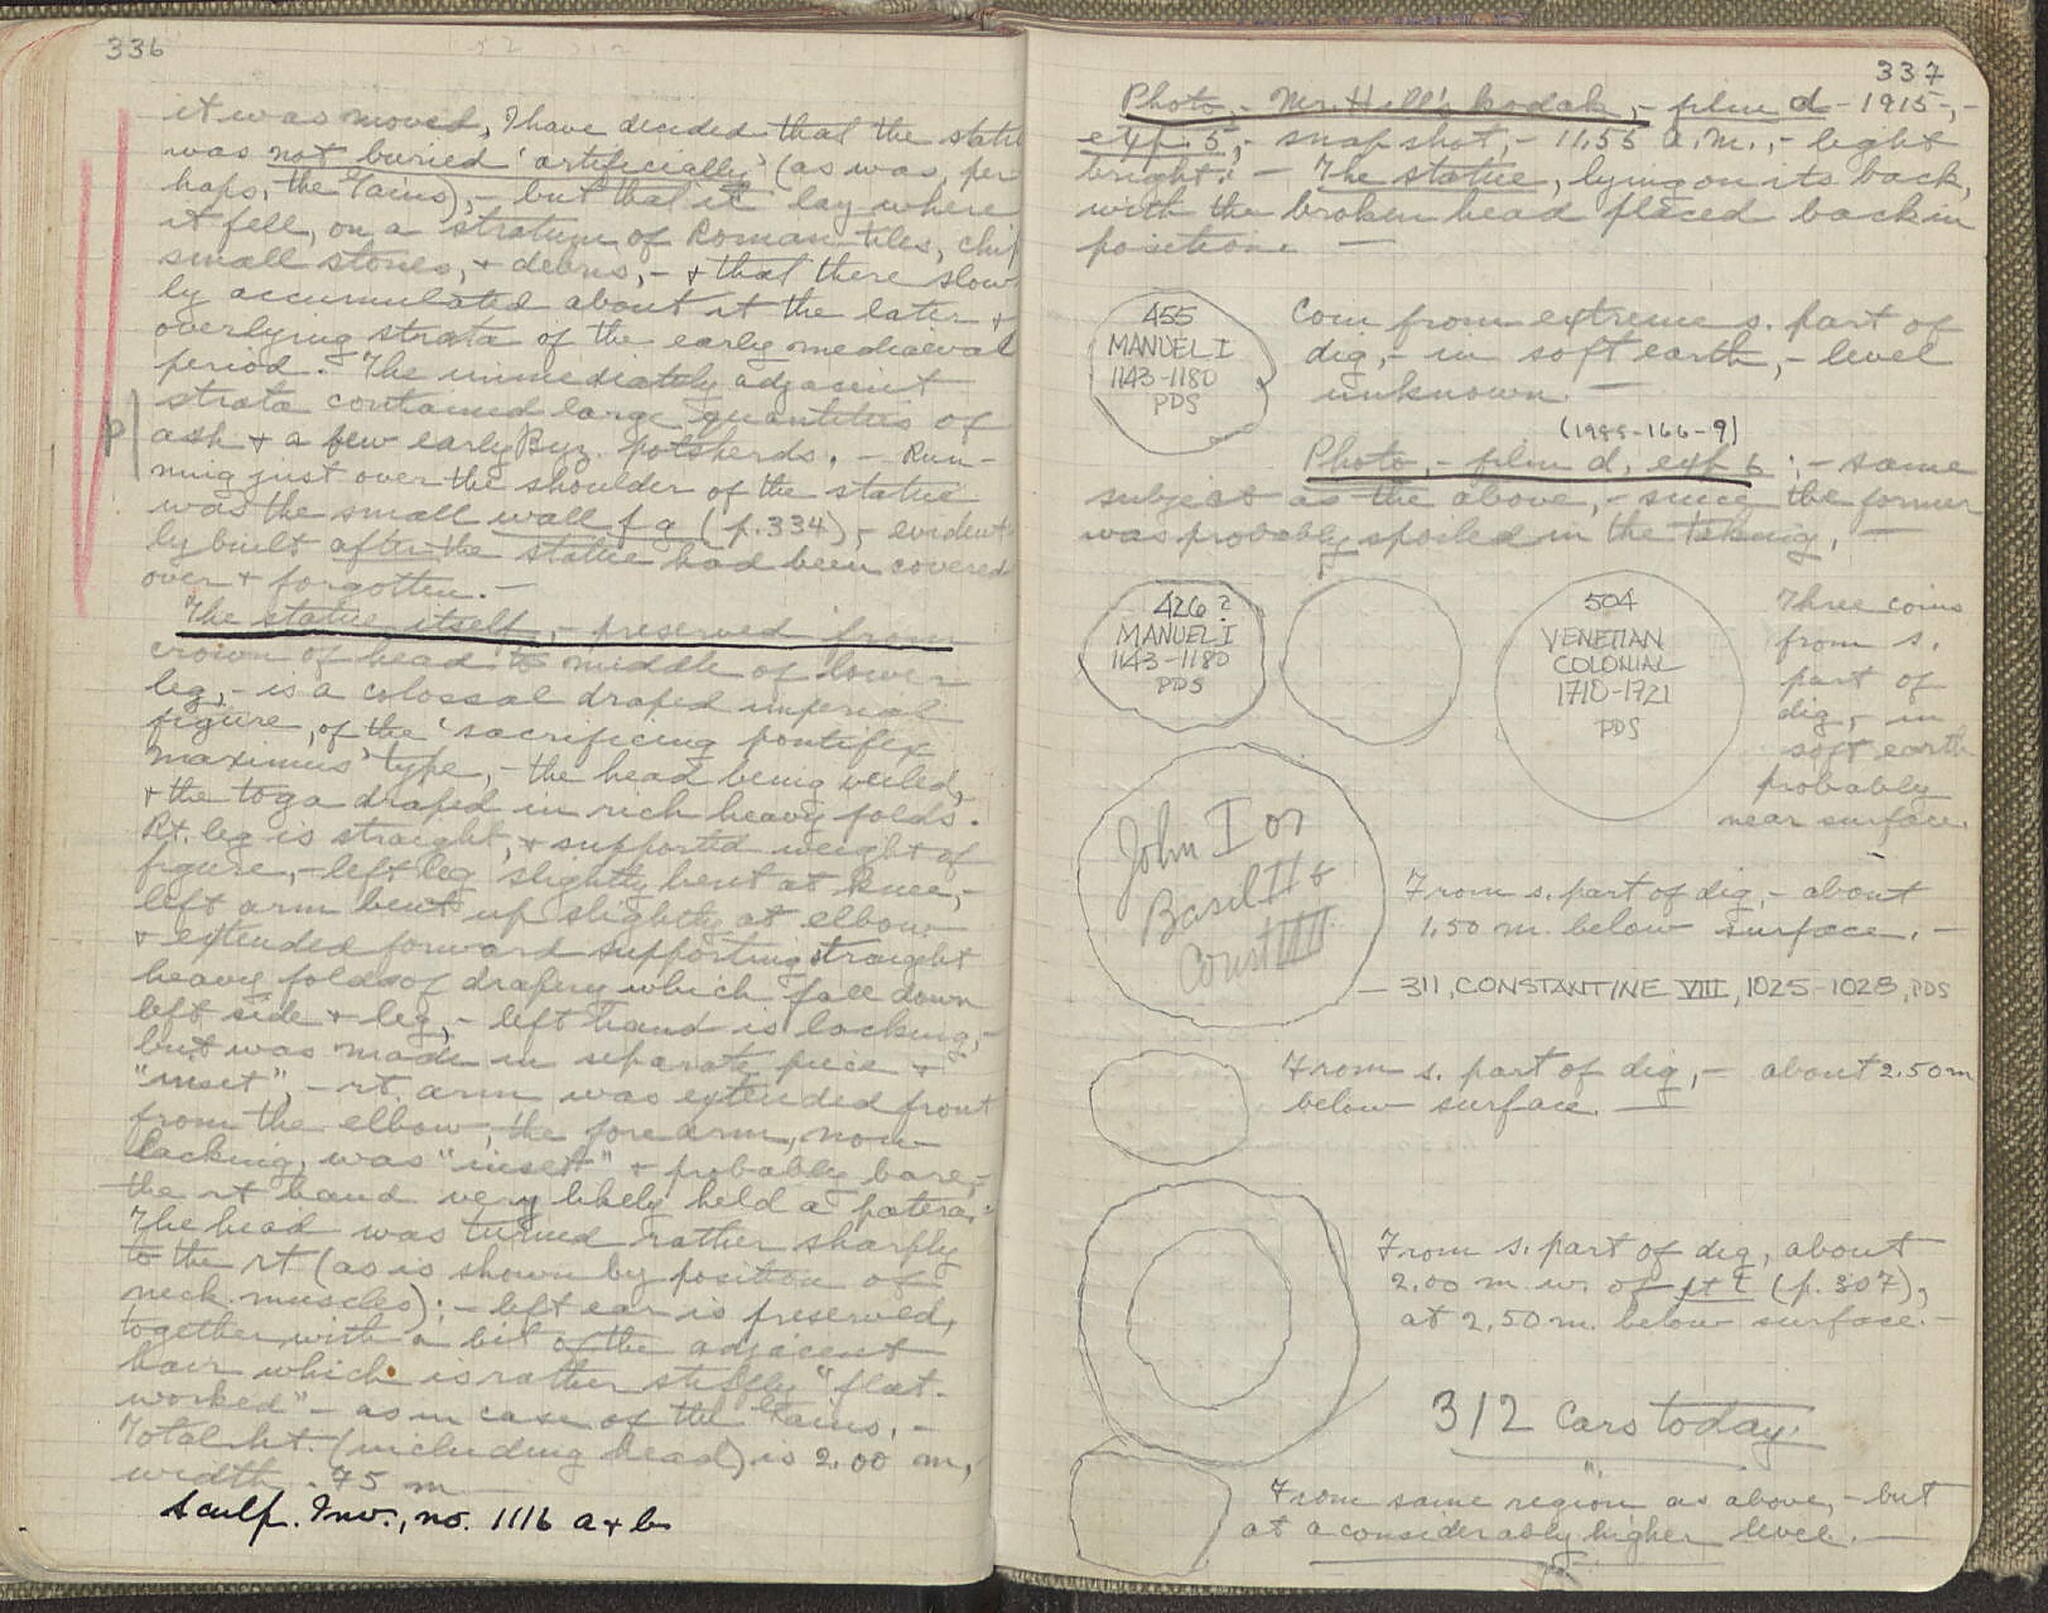 336
it was moved, I have decided that the statue
was not buried 'artificially' (as was, per
haps, the Gaius), – but that it lay where
it fell, on a stratum of Roman tiles, chip
small stones, + debris, – + that there slow
ly accumulated about it the later +
overlying strata of the early mediaeval
period. The immediately adjacent
strata contained large quantities of
p| ash + a few early Byz. potsherds. – Run-
ning just over the shoulder of the statue
was the small wall f g (p. 334), – evident
ly built after the statue had been covered
over + forgotten. –
The statue itself, – preserved from
crown of head to middle of lower
leg, – is a colossal draped imperial
figure, of the 'sacrificing pontifex
maximus' type, – the head being veiled,
+ the toga draped in rich heavy folds.
Rt. leg is straight, + supported weight of
figure, – left leg slightly bent at knee, –
left arm bent up slightly at elbow
+ extended forward supporting straight
heavy folds of drapery which fall down
left side + leg, – left hand is lacking, –
but was made in separate piece +
"inset", – rt. arm was extended front
from the elbow, the forearm, now
lacking, was "inset" + probably bare, –
the rt hand very likely held a patera. –
The head was turned rather sharply
to the rt (as is shown by position of
neck muscles); – left ear is preserved,
together with a bit of the adjacent
hair which is rather stiffly "flat-
worked" – as in case of the Gaius. –
Total ht. (including head) is 2.00 m,
width .75 m
Sculp. Inv., no. 1116 a + b
337
Photo, – Mr. Hill's kodak, – film d – 1915, –
exp. 5, – snap shot, – 11.55 a.m., – light
bright: – The statue, lying on its back,
with the broken head placed back in
position. –
455
MANUEL I
1143-1180
PDS
Coin from extreme s. part of
dig, – in soft earth, – level
unknown. –
(1985-166-9)
Photo, – film d, exp 6: – same
subject as the above, – since the former
was probably spoiled in the taking. –
426?
MANUEL I
1143-1180
PDS
504
VENETIAN
COLONIAL
1710-1721
PDS
Three coins
from s.
part of
dig, – in
soft earth
probably
near surface.
John I or
Basil II +
Const VIII
From s. part of dig, – about
1.50 m. below surface. –
– 311, CONSTANTINE VIII, 1025-1028, PDS
From s. part of dig, – about 2.50 m
below surface. –
From s. part of dig, about
2.00 m w. of pt t (p. 307),
at 2.50 m. below surface. –
312 Cars today.
From same region as above, – but
at a considerably higher level. –